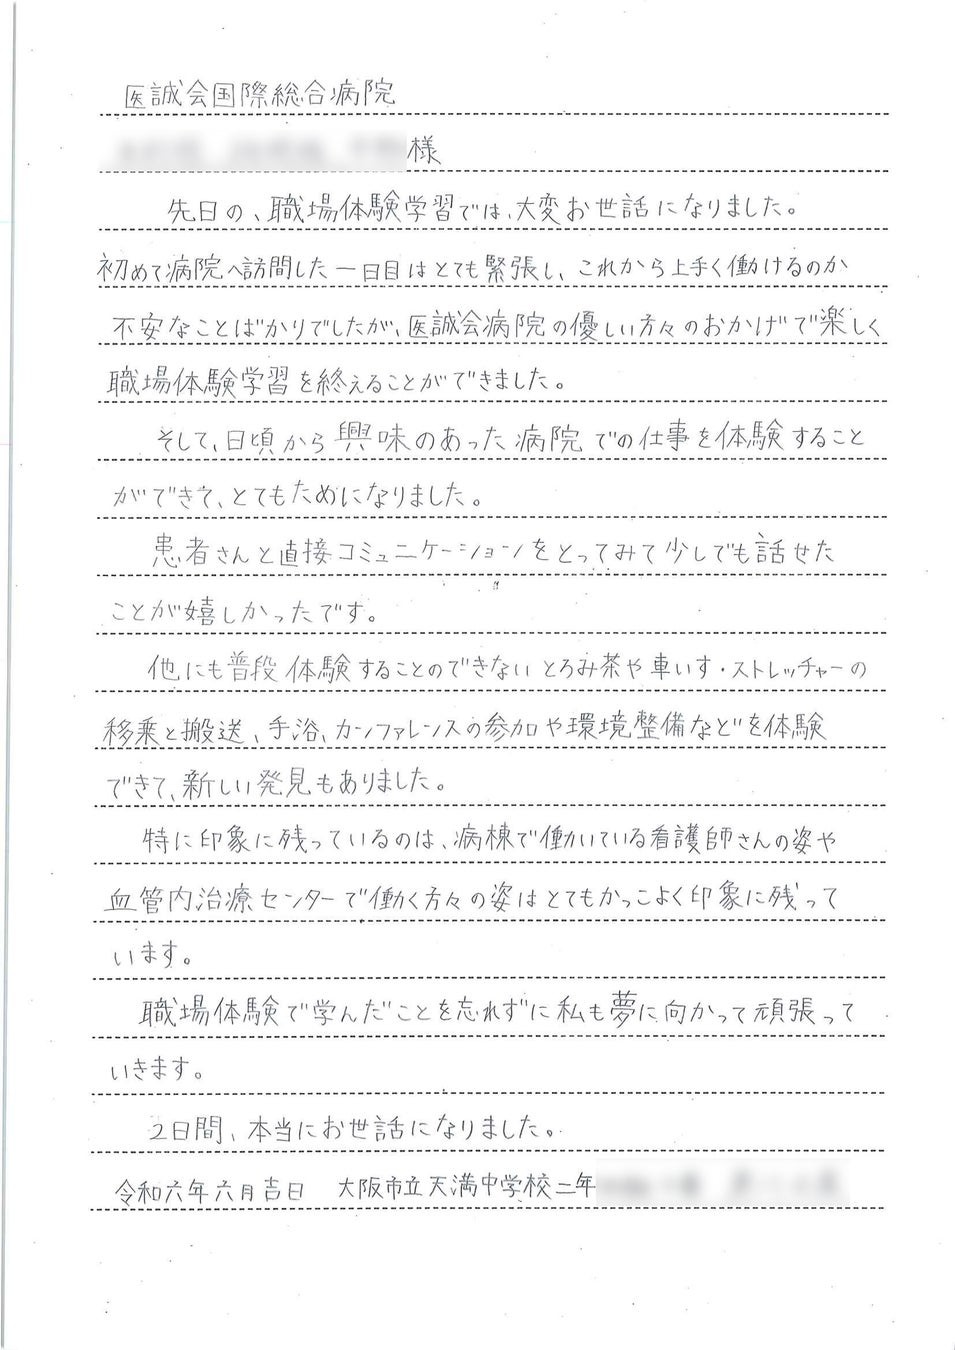 医誠会国際総合病院
様
先日の、職場体験学習では、大変お世話になりました。
初めて病院へ訪問した一日目はとても緊張し、これから上手く働けるのか
不安なことばかりでしたが、医誠会病院の優しい方々のおかげで楽しく
職場体験学習を終えることができました。
そして、日頃から興味のあった病院での仕事を体験すること
ができて、とてもためになりました。
患者さんと直接コミュニケーションをとってみて少しでも話せた
ことが嬉しかったです。
他にも普段体験することのできないとろみ茶や車いす・ストレッチャーの
移乗と搬送、手浴、カンファレンスの参加や環境整備などを体験
できて、新しい発見もありました。
特に印象に残っているのは、病棟で働いている看護師さんの姿や
血管内治療センターで働く方々の姿はとてもかっこよく印象に残って
います。
職場体験で学んだことを忘れずに私も夢に向かって頑張って
いきます。
2日間、本当にお世話になりました。
令和六年六月吉日 大阪市立天満中学校二年